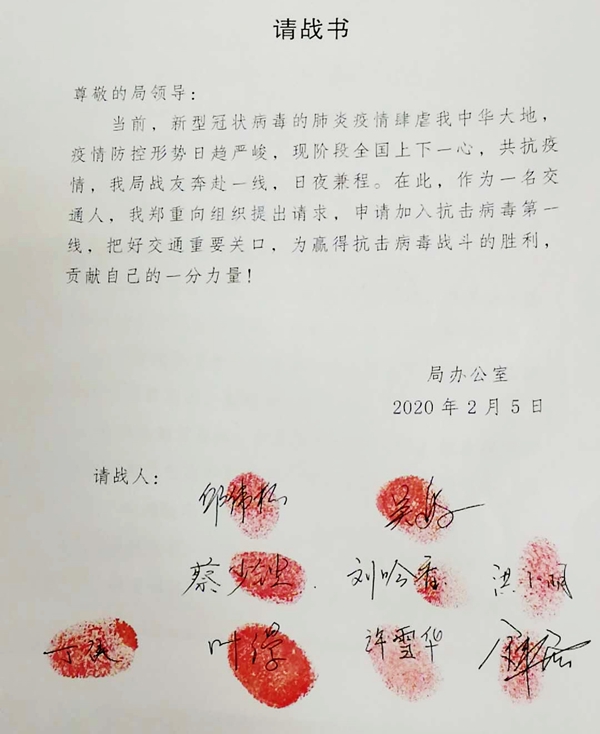 请战书
尊敬的局领导：
当前，新型冠状病毒的肺炎疫情肆虐我中华大地，
疫情防控形势日趋严峻，现阶段全国上下一心，共抗疫
情，我局战友奔赴一线，日夜兼程。在此，作为一名交
通人，我郑重向组织提出请求，申请加入抗击病毒第一
线，把好交通重要关口，为赢得抗击病毒战斗的胜利，
贡献自己的一分力量！
局办公室
2020 年 2 月 5 日
请战人：
蔡少
刘吟香
许雪华